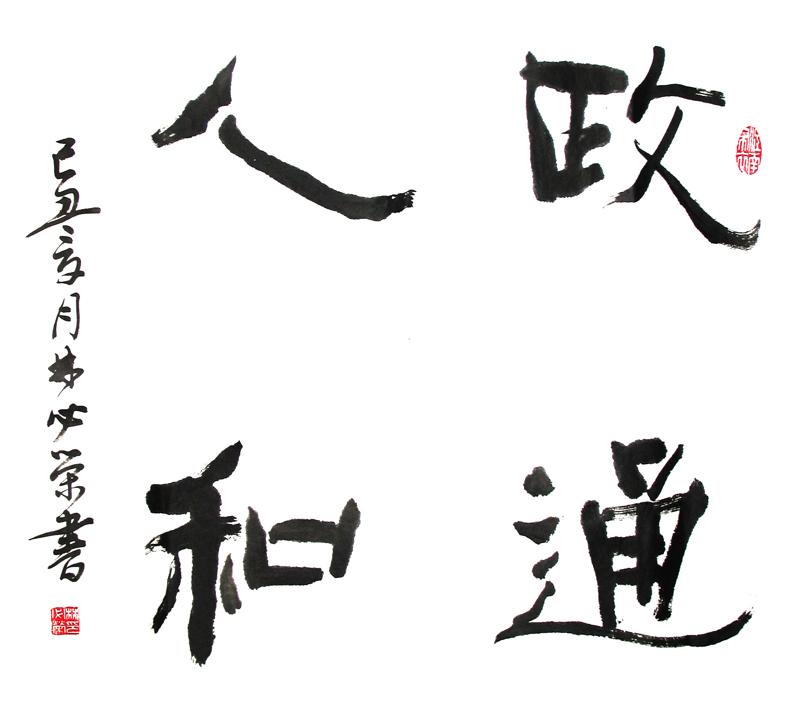 政通
人和
己丑亥月林必荣書